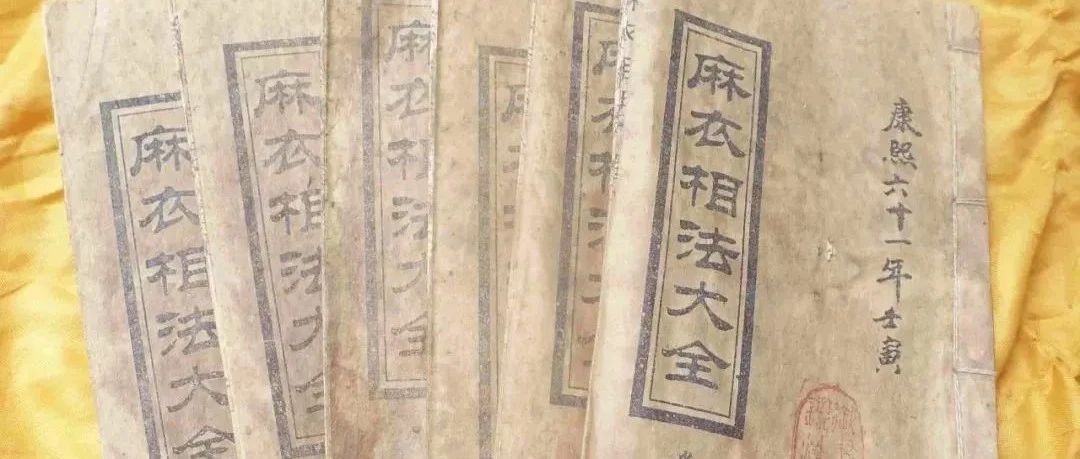 康熙六十一年壬寅
麻衣相法大全
麻衣相法大全
麻衣相
麻衣相法大全
麻衣相法大全
麻衣相法大全